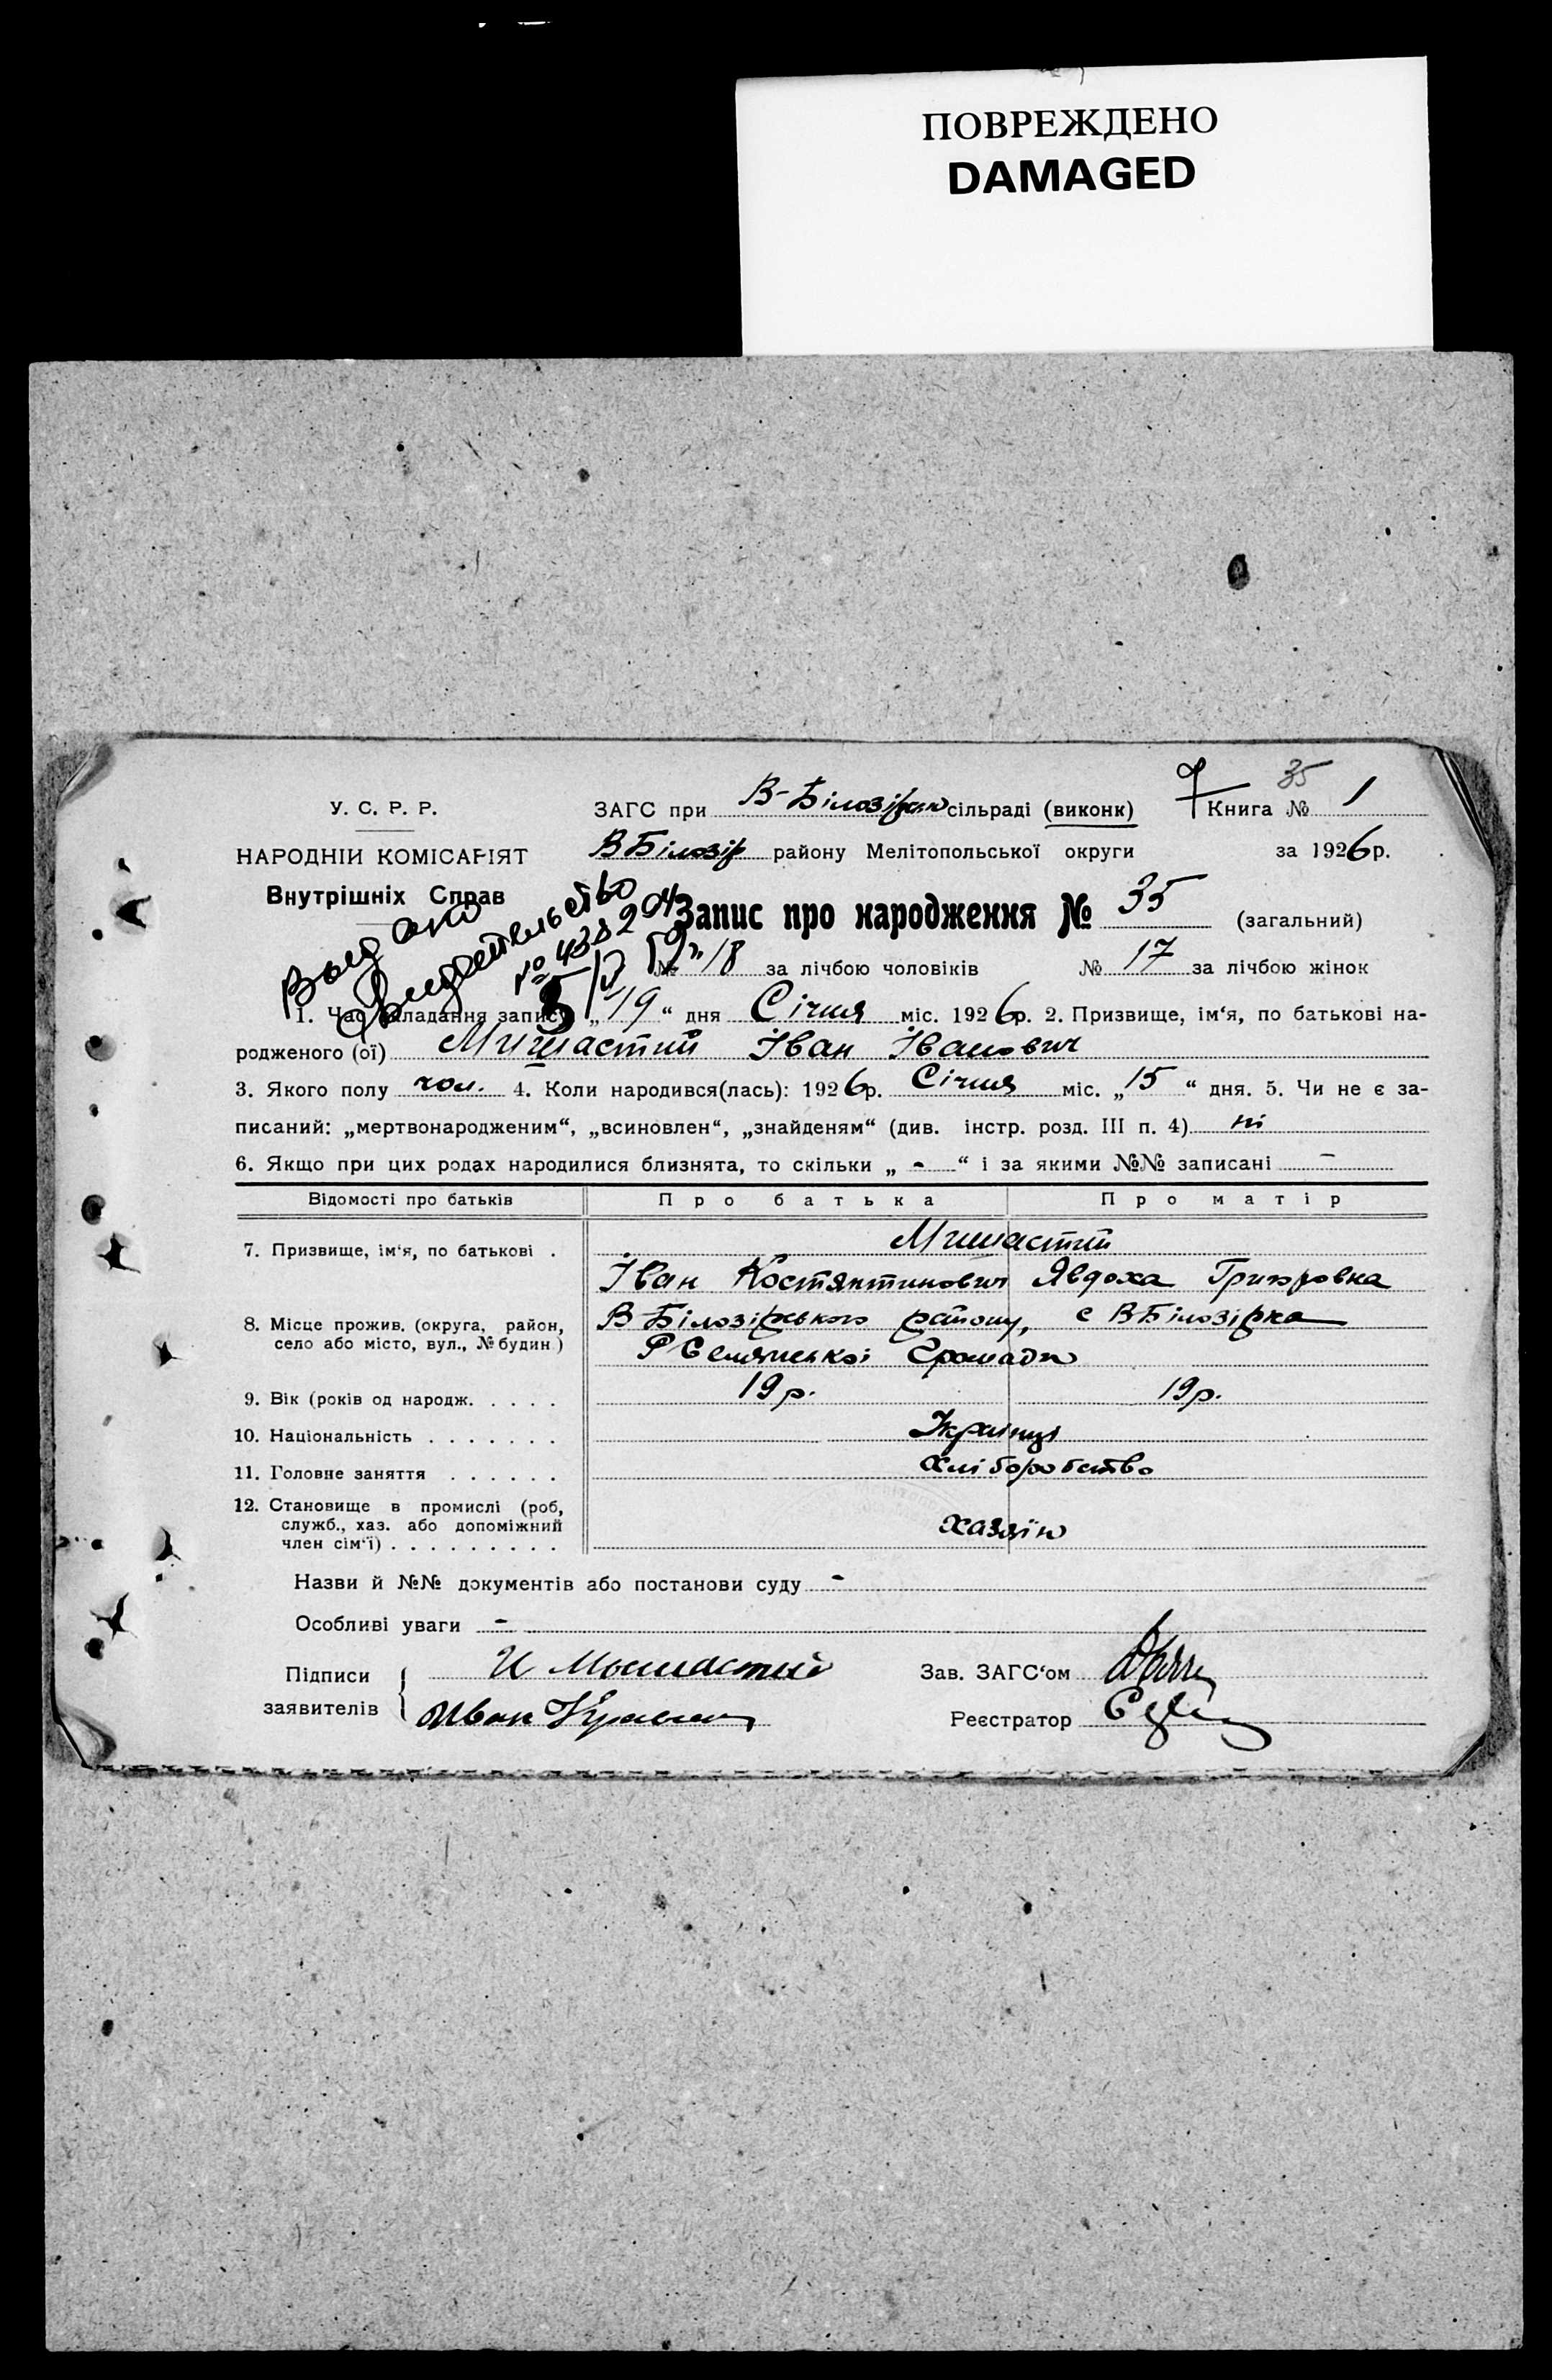 ПОВРЕЖДЕНО
DAMAGED
35
У. С. Р. Р.
ЗАГС при В-Білозірск сільраді (виконк)
Книга № 1
НАРОДНІЙ КОМІСАРІЯТ
В Білозір району Мелітопольської округи
за 1926 р.
Внутрішніх Справ
Выдано
Свидетельство
Запис про народження № 35 (загальний)
№ 18 за лічбою чоловіків № 17 за лічбою жінок
1. Час складання запису „19“ дня Січня міс. 1926 р. 2. Призвище, ім‘я, по батькові на-
родженого (ої) Мишастий Іван Іванович
3. Якого полу чол. 4. Коли народився(лась): 1926 р. Січня міс. „15“ дня. 5. Чи не є за-
писаний: „мертвонародженим“, „всиновлен“, „знайденям“ (див. інстр. розд. III п. 4) ні
6. Якщо при цих родах народилися близнята, то скільки „ - “ і за якими №№ записані -
Відомості про батьків
Про батька
Про матір
7. Призвище, ім‘я, по батькові .
Мишастий
Іван Костянтинович Явдоха Григоровна
8. Місце прожив. (округа, район,
село або місто, вул., № будин)
В Білозірського району, с В Білозірка
Громади
9. Вік (років од народж. . . . .
19 р. 19 р.
10. Національність . . . . . . .
Українці
11. Головне заняття . . . . . .
хліборобство
12. Становище в промислі (роб,
служб., хаз. або допоміжний
член сім‘ї) . . . . . . . . .
хазяїн
Назви й №№ документів або постанови суду -
Особливі уваги -
Підписи
заявителів
И Мышастий
Иван
Зав. ЗАГС‘ом
Реєстратор